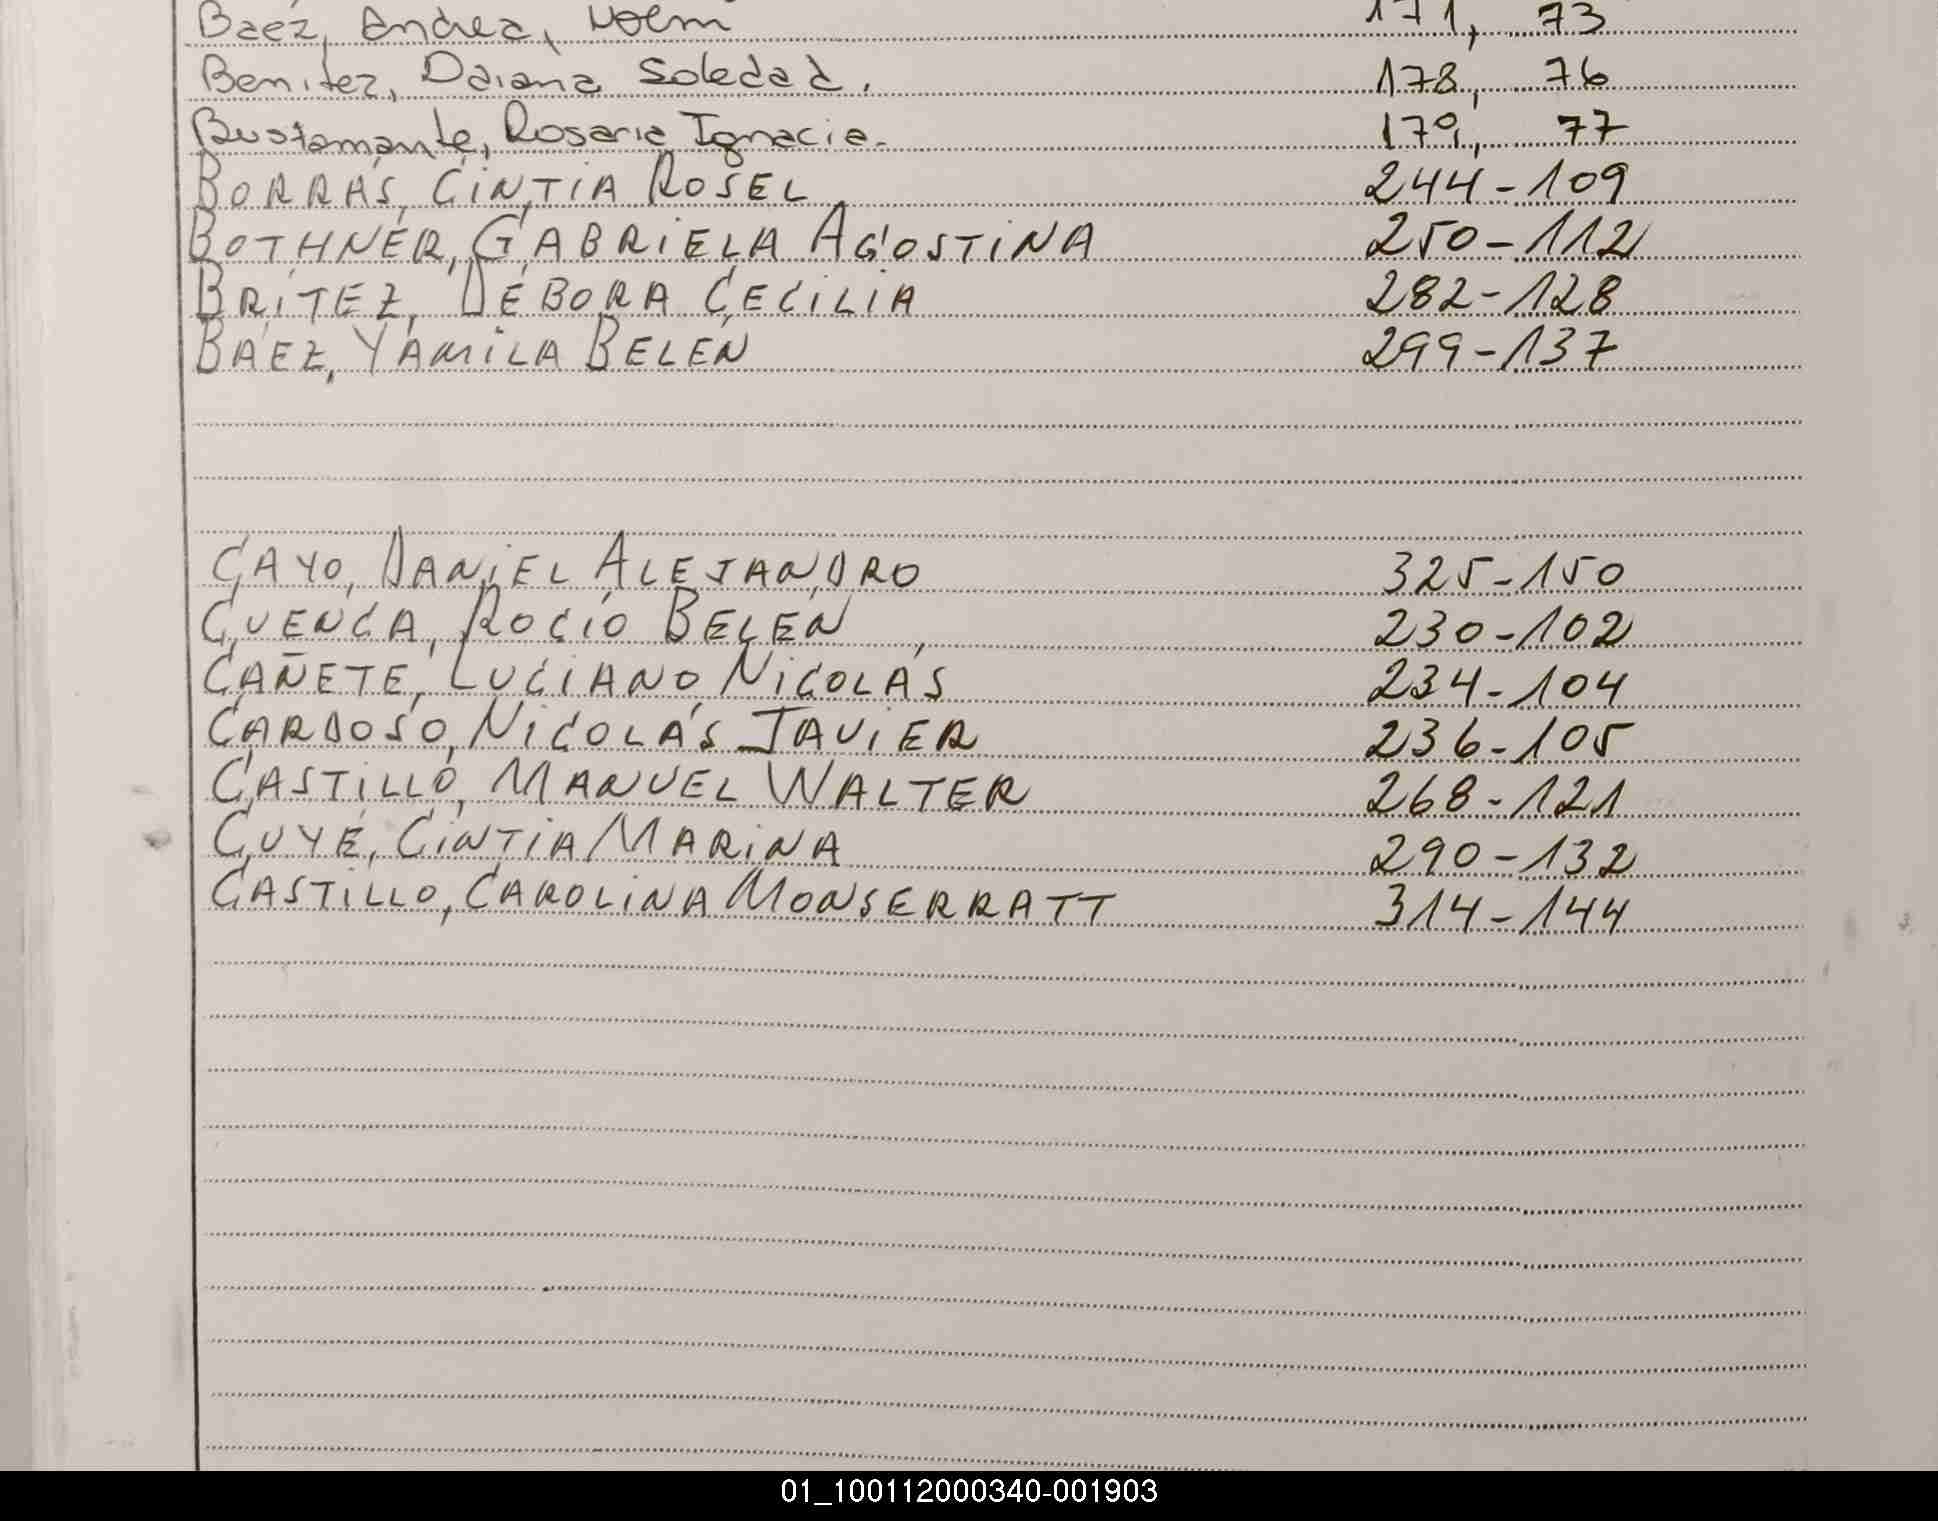 Baez, Andrea, Noemi 171, 73
Benitez, Daiana Soledad. 178, 76
Bustamante, Rosaria Ignacia. 179, 77
BORRÁS, CINTIA ROSEL 244-109
BOTHNER, GABRIELA AGOSTINA 250-112
BRITEZ, DÉBORA CECILIA 282-128
BAEZ, YAMILA BELÉN 299-137
CAYO, DANIEL ALEJANDRO 325-150
CUENCA, ROCÍO BELÉN 230-102
CAÑETE, LUCIANO NICOLÁS 234-104
CARDOSO, NICOLÁS JAVIER 236-105
CASTILLO, MANUEL WALTER 268-121
CUYÉ, CINTIA MARINA 290-132
CASTILLO, CAROLINA MONSERRATT 314-144
01_100112000340-001903